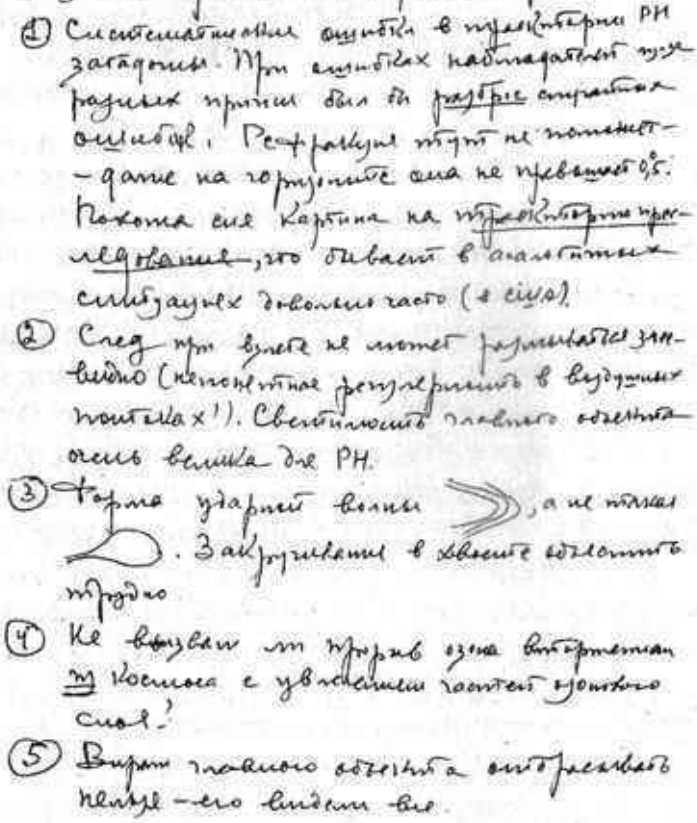 ① Систематические ошибки в траектории РН
загадочны. При ошибках наблюдателей
разных причин был бы разброс
ошибок. Рефракция тут не поможет –
– даже на горизонте она не превышает 0,5°.
Похожа сия картина на траекторию прес-
ледования, что бывает в аналогичных
ситуациях довольно часто
② След при взлете не может размываться
видно (непонятная в воздушных
потоках!). Светимость главного объекта
очень велика для РН.
③ Форма ударной волны , а не такая
. Закручивание в хвосте объяснить
трудно.
④ Не вызван ли прорыв озона вторжением
из Космоса с увлечением частей озонового
слоя?
⑤ Вираж главного объекта отбрасывать
нельзя – его видели все.